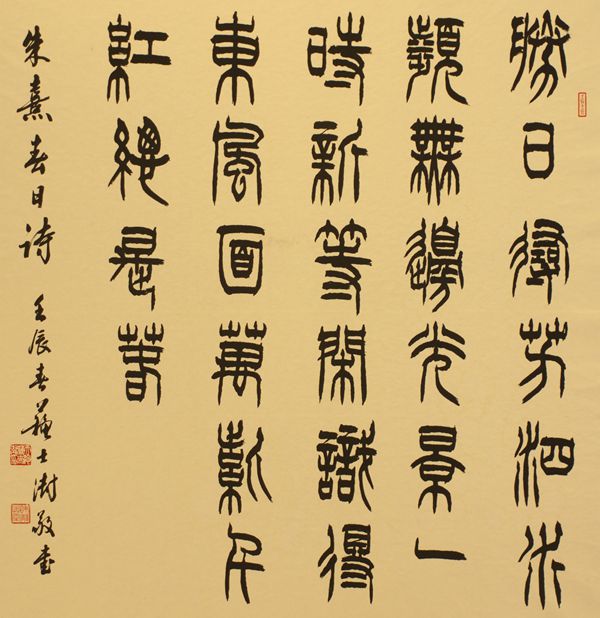 勝日尋芳泗水
瀕無邊光景一
時新等閑識得
東風面萬紫千
紅總是春
朱熹春日詩 壬辰春蘇士澍敬書